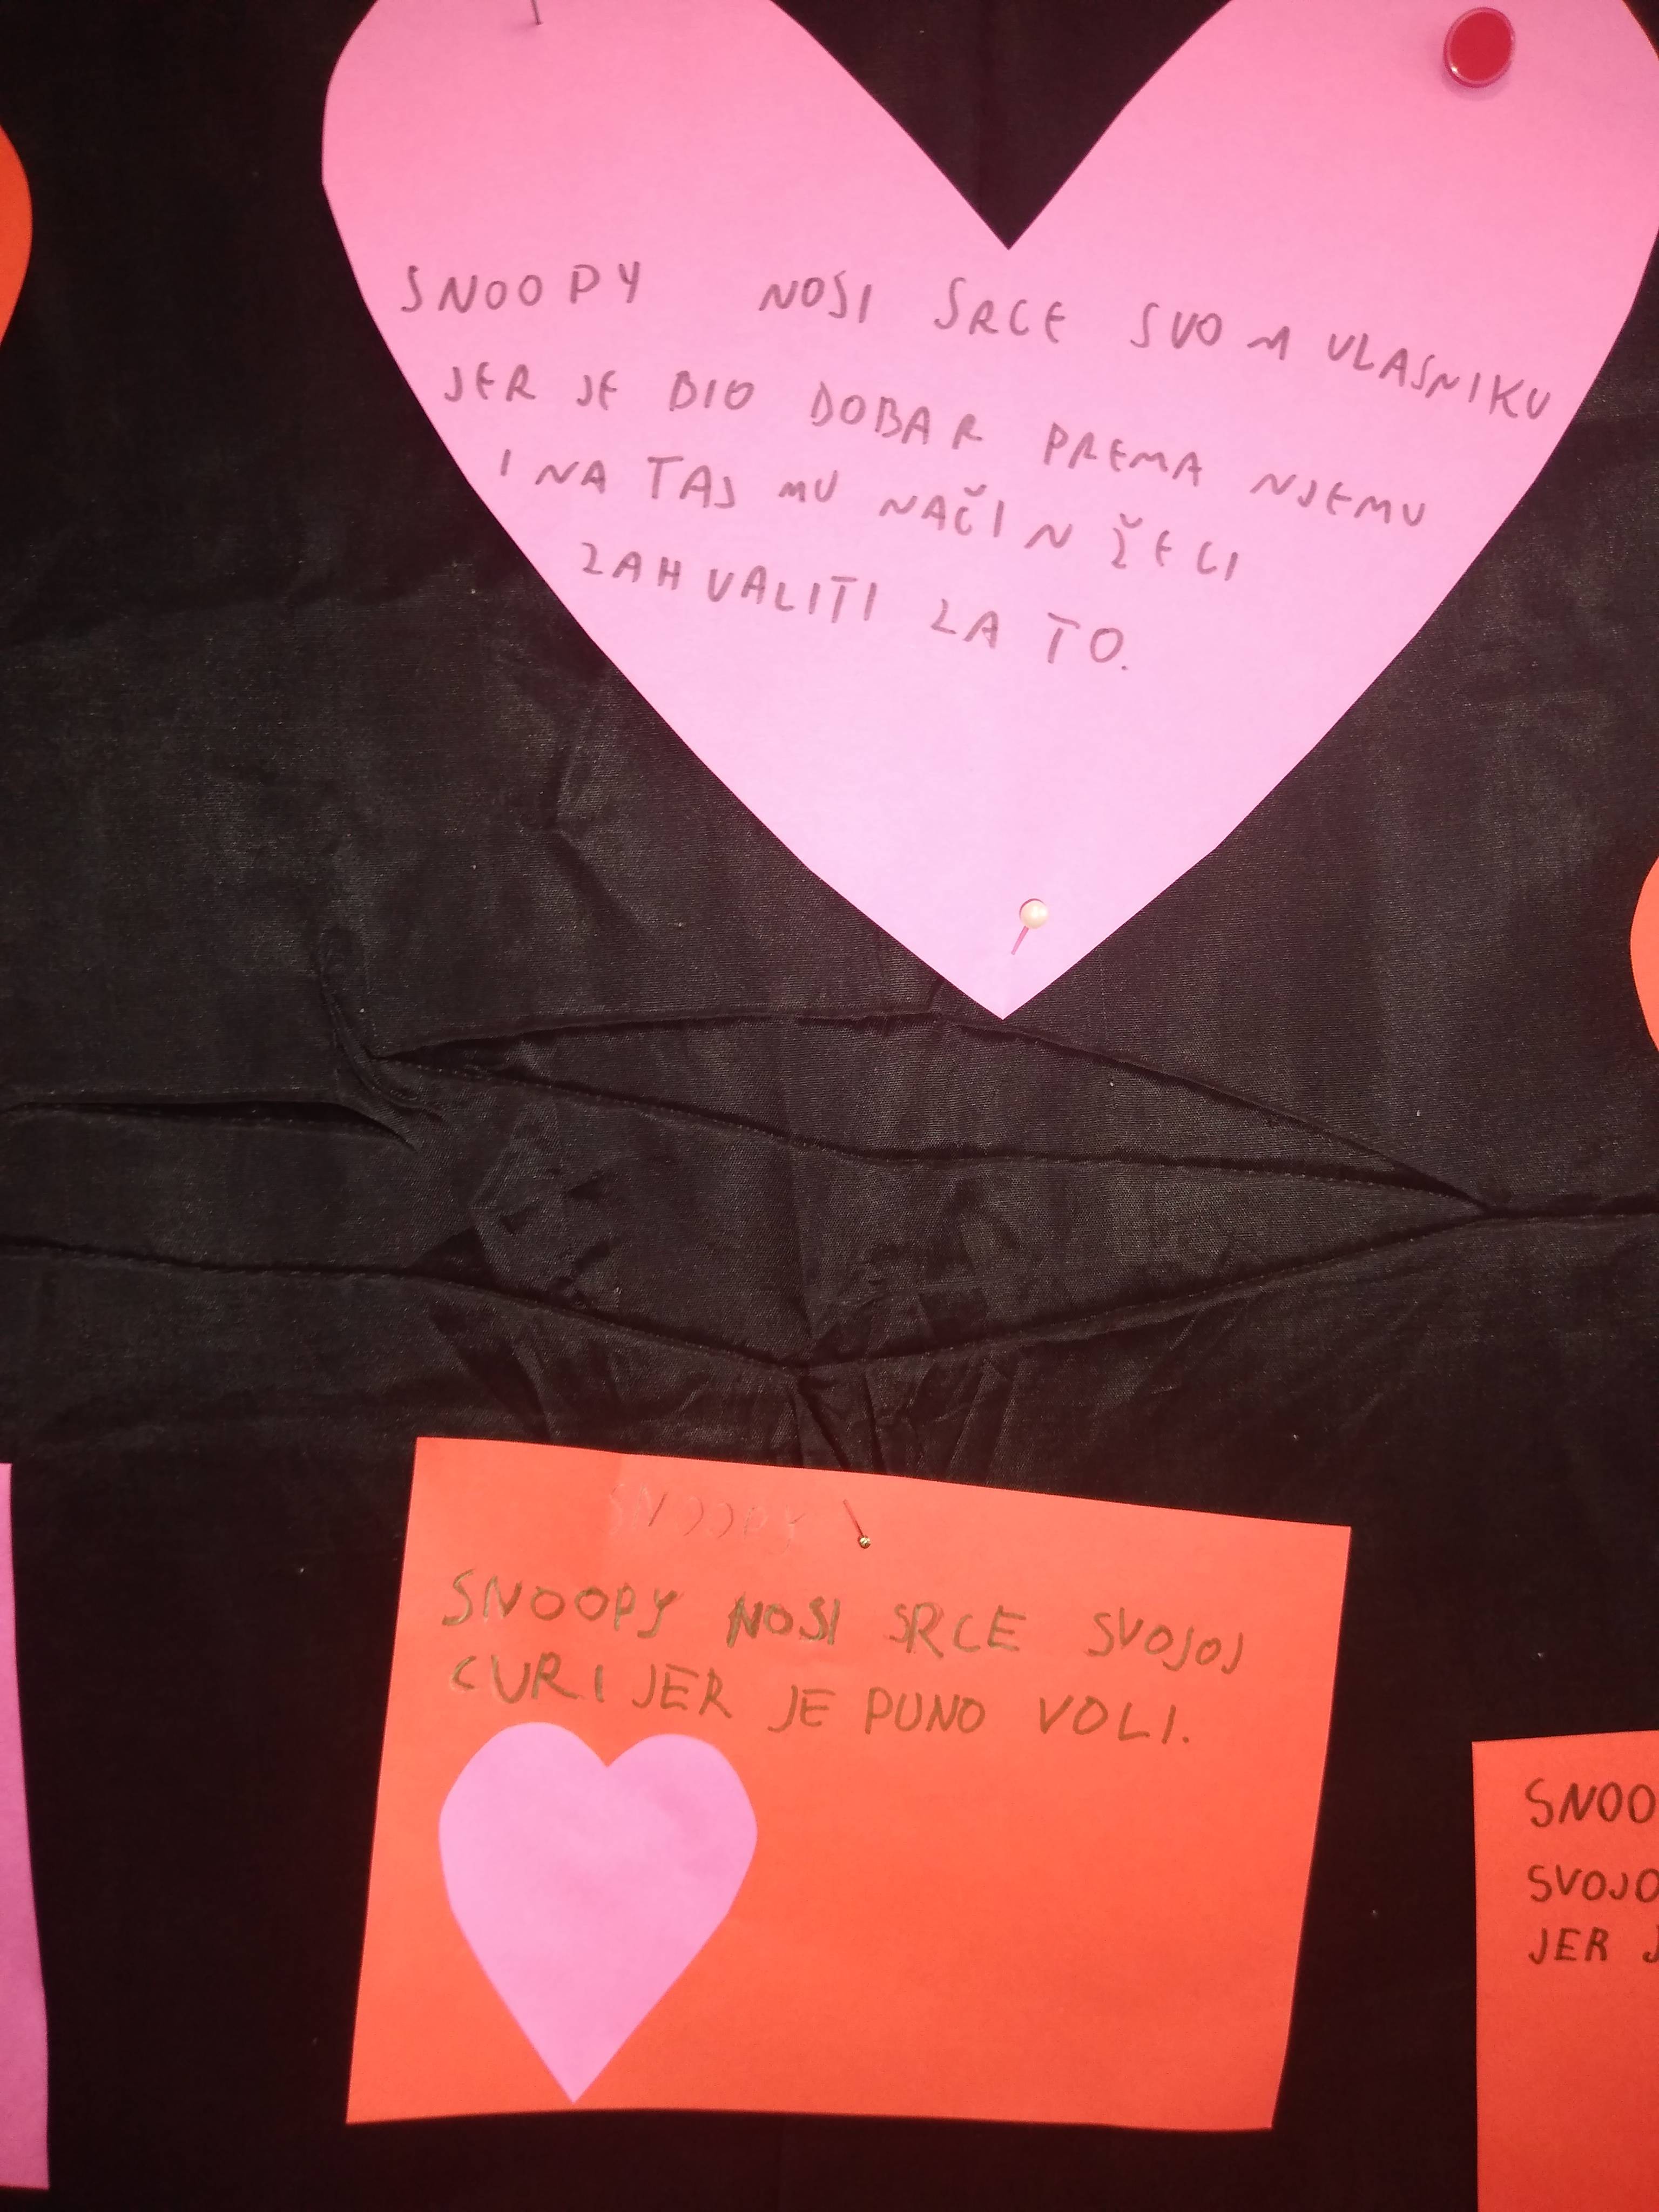 SNOOPY NOSI SRCE SVOM VLASNIKU
JER JE BIO DOBAR PREMA NJEMU
I NA TAJ MU NAČIN ŽELI
ZAHVALITI ZA TO.
SNOOPY
SNOOPY NOSI SRCE SVOJOJ
CURI JER JE PUNO VOLI.
SNOO
SVOJO
JER J